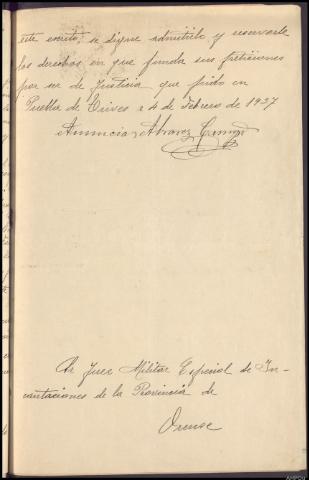 este escrito, se digne admitirlo y reservarle
los derechos en que funda sus peticiones
por ser de Justicia que pido en
Puebla de Trives a 4 de Febrero de 1937
Anuncia Alvarez
Sr Juez Militar Especial de In-
cautaciones de la Provincia de
Orense
AHPOU